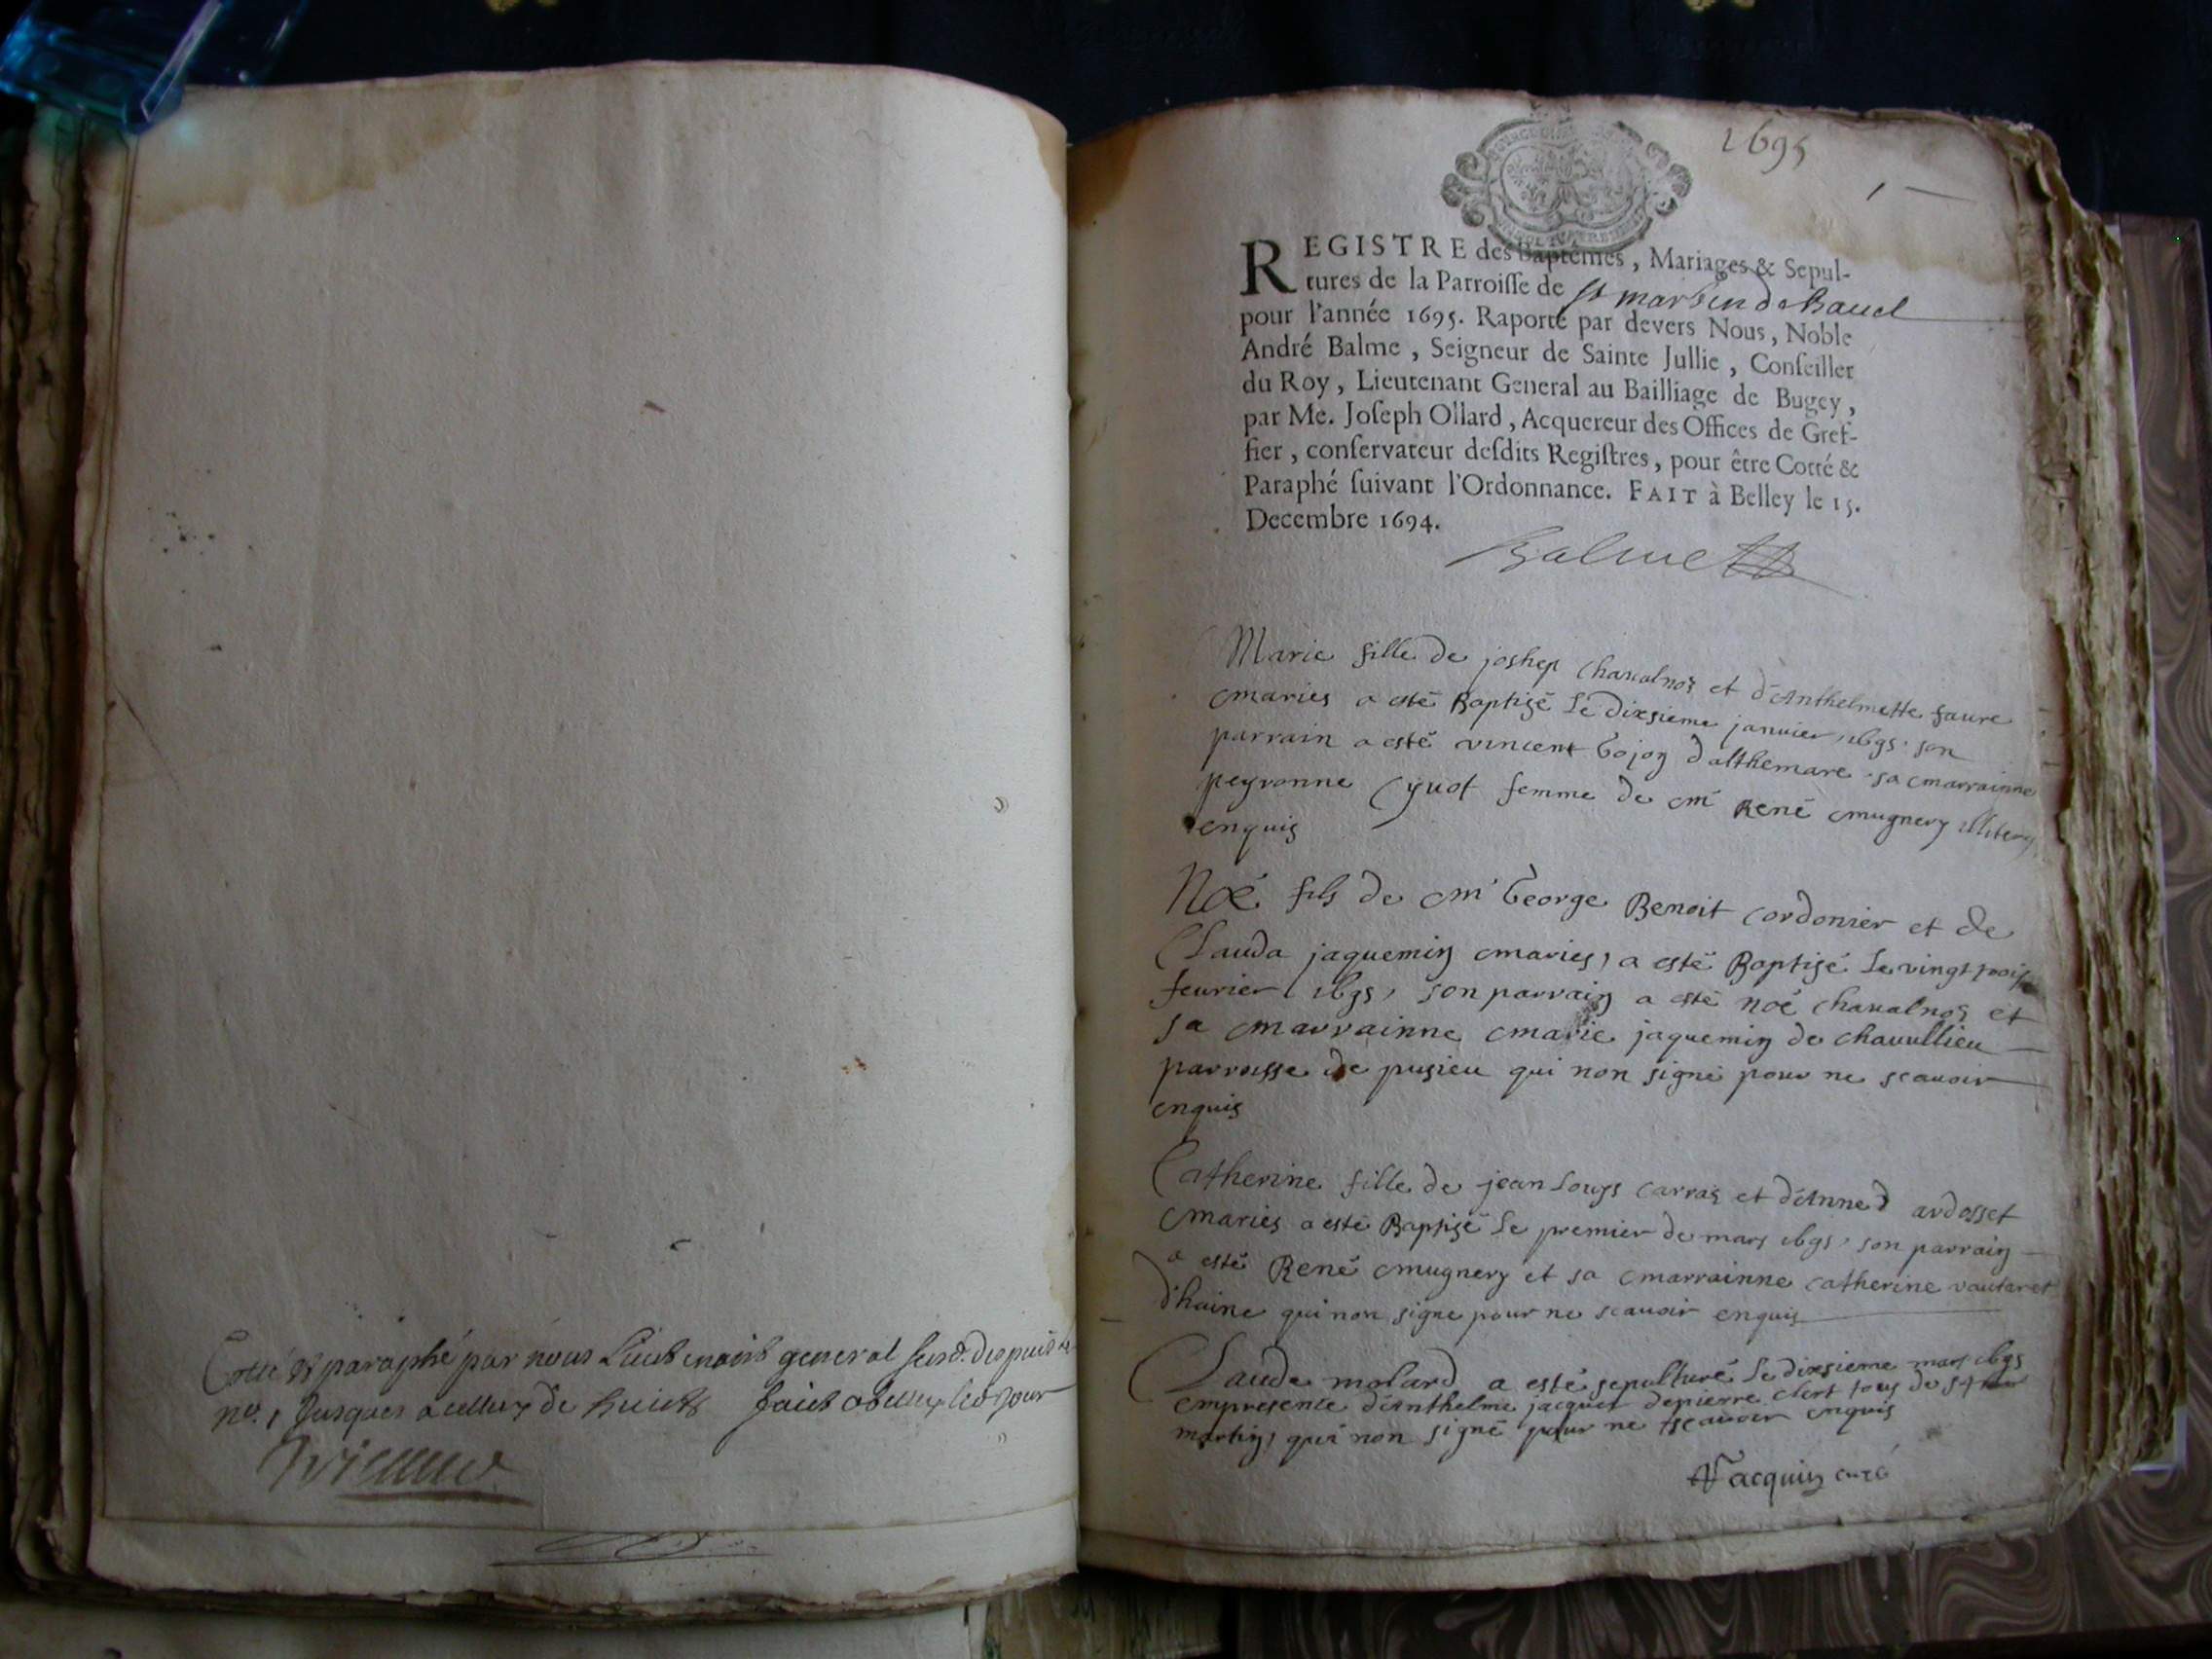 Cotté & paraphé par nous Lieutenant general susd. depuis le
no. 1 Jusques a celluy de huict faict a belley led. jour
1695
1
REGISTRE des Baptêmes, Mariages & Sepul-
tures de la Parroisse de st martin de bauel
pour l'année 1695. Raporté par devers Nous, Noble
André Balme, Seigneur de Sainte Jullie, Conseiller
du Roy, Lieutenant General au Bailliage de Bugey,
par Me. Joseph Ollard, Acquereur des Offices de Gref-
fier, conservateur desdits Registres, pour être Cotté &
Paraphé suivant l'Ordonnance. FAIT à Belley le 15.
Decembre 1694.
Balme
Marie fille de joshep chaualnoz et d'Anthelmette faure
maries a esté Baptizé Le dixsieme januier 1695. son
parrain a esté vincent bojoz d'althemare sa marrainne
peyronne Cyuot femme de mr René mugnery illiterez
enquis
Noé fils de mr George Benoit cordonier et de
Clauda jaquemin maries, a esté Baptizé Le vingt trois
feurier 1695, son parrain a esté noé chaualnoz et
sa marrainne marie jaquemin de chauullieu
parroisse de pusieu qui non signé pour ne scauoir
enquis
Catherine fille de jean Louys carraz et d'Anne d ardosset
maries a esté Baptizé Le premier de mars 1695, son parrain
a esté René mugnery et sa marrainne catherine vautaret
d'haine qui non signe pour ne scauoir enquis
Claude molard a esté sepulturé Le dixsieme mars 1695
empresence d'Anthelme jacquet depierre clert tous de st
martin, qui non signé pour ne scauoir enquis
Jacquin curé